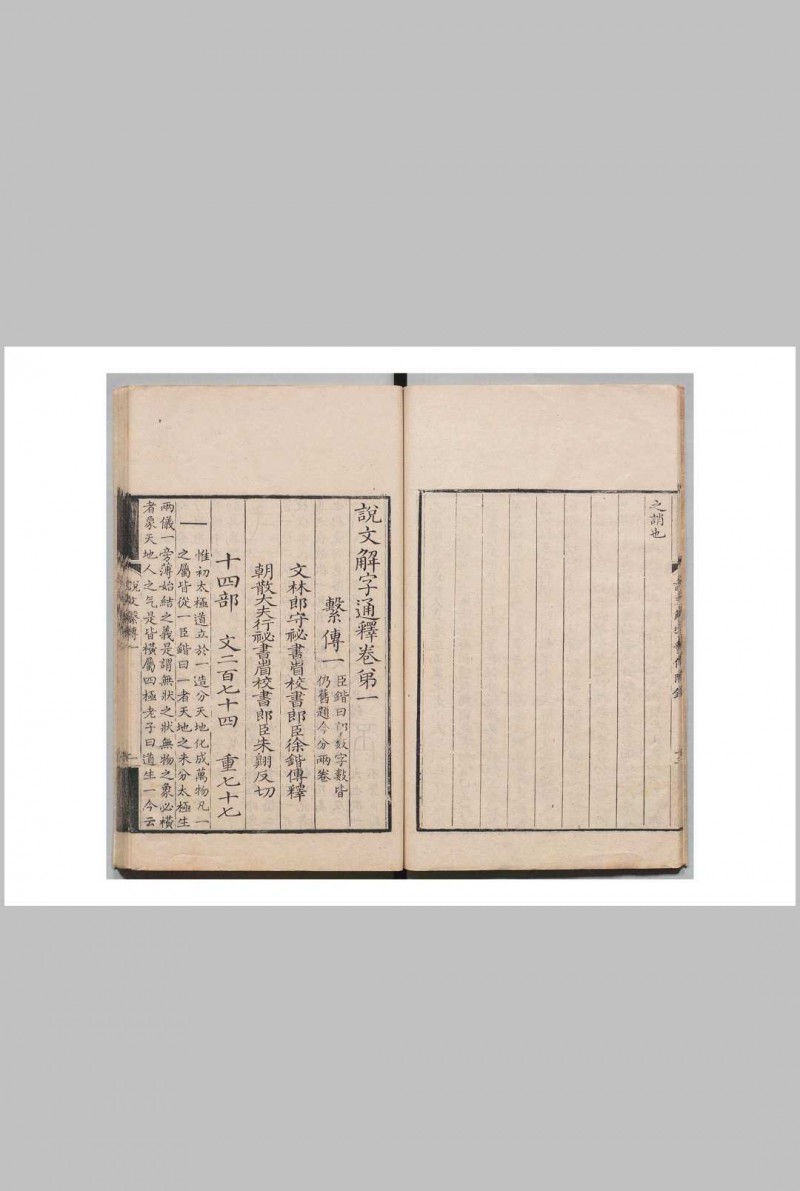 之誚也
說文解字通釋卷第一
繫傳一
臣鍇曰部數字數皆
仍舊題今分兩卷
文林郎守祕書省校書郎臣徐鍇傳釋
朝散大夫行祕書省校書郎臣朱翱反切
十四部 文二百七十四 重七十七
一
惟初太極道立於一造分天地化成萬物凡一
之屬皆從一臣鍇曰一者天地之未分太極生
兩儀一旁薄始結之義是謂無狀之狀無物之象必橫
者象天地人之气是皆橫屬四極老子曰道生一今云
說文繫傳一